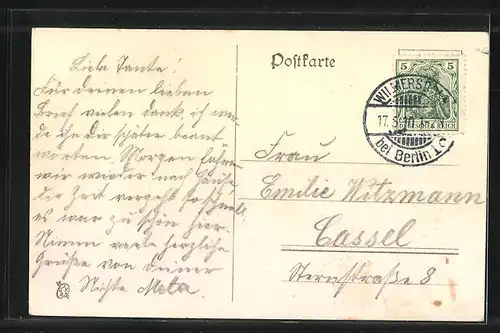 Postkarte
5 5
DEUTSCHES REICH
WILMERSDORF
17.5.10
bei Berlin 1 C
Liebe Tante!
Für deinen lieben
Brief vielen Dank, ich werde
ihn dir später beant
worten. Morgen fahren
wir wieder nach Hause,
die Zeit vergeht so schnell
es war zu schön hier.
Nimm viele herzliche
Grüße von deiner
Nichte Meta.
Frau
Emilie Witzmann
Cassel
Sternstraße 8